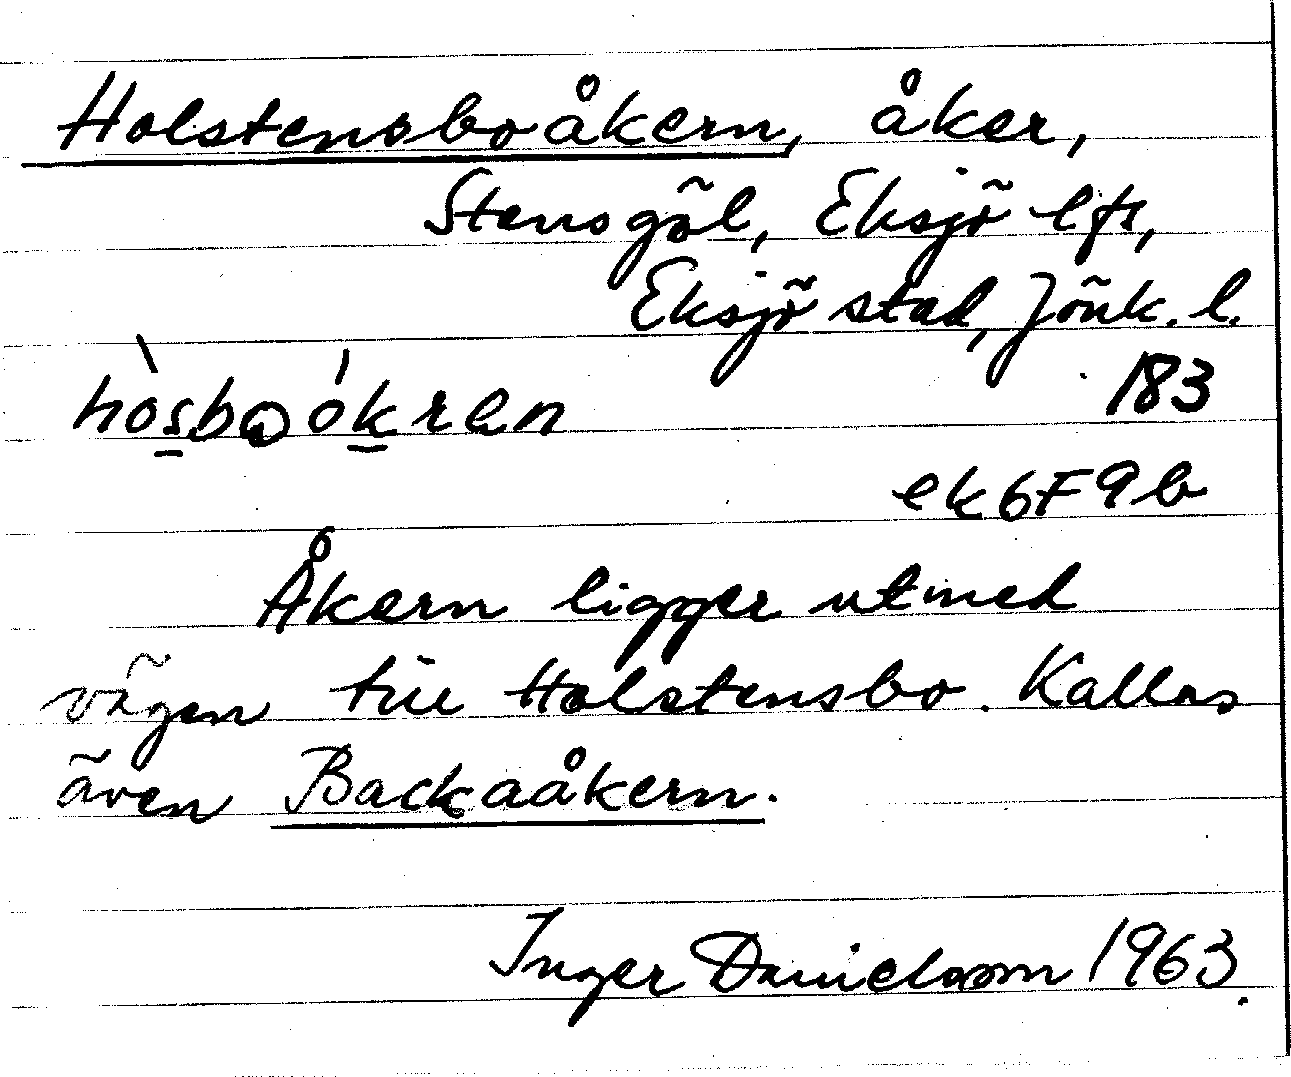 Holstensboåkern, åker,
Stensgöl, Eksjö lfs,
Eksjö stad, Jönk. l.
hòsbωókren 183
ek6F9b
Åkern ligger utmed
vägen till Holstensbo. Kallas
även Backaåkern.
Inger Danielsson 1963.